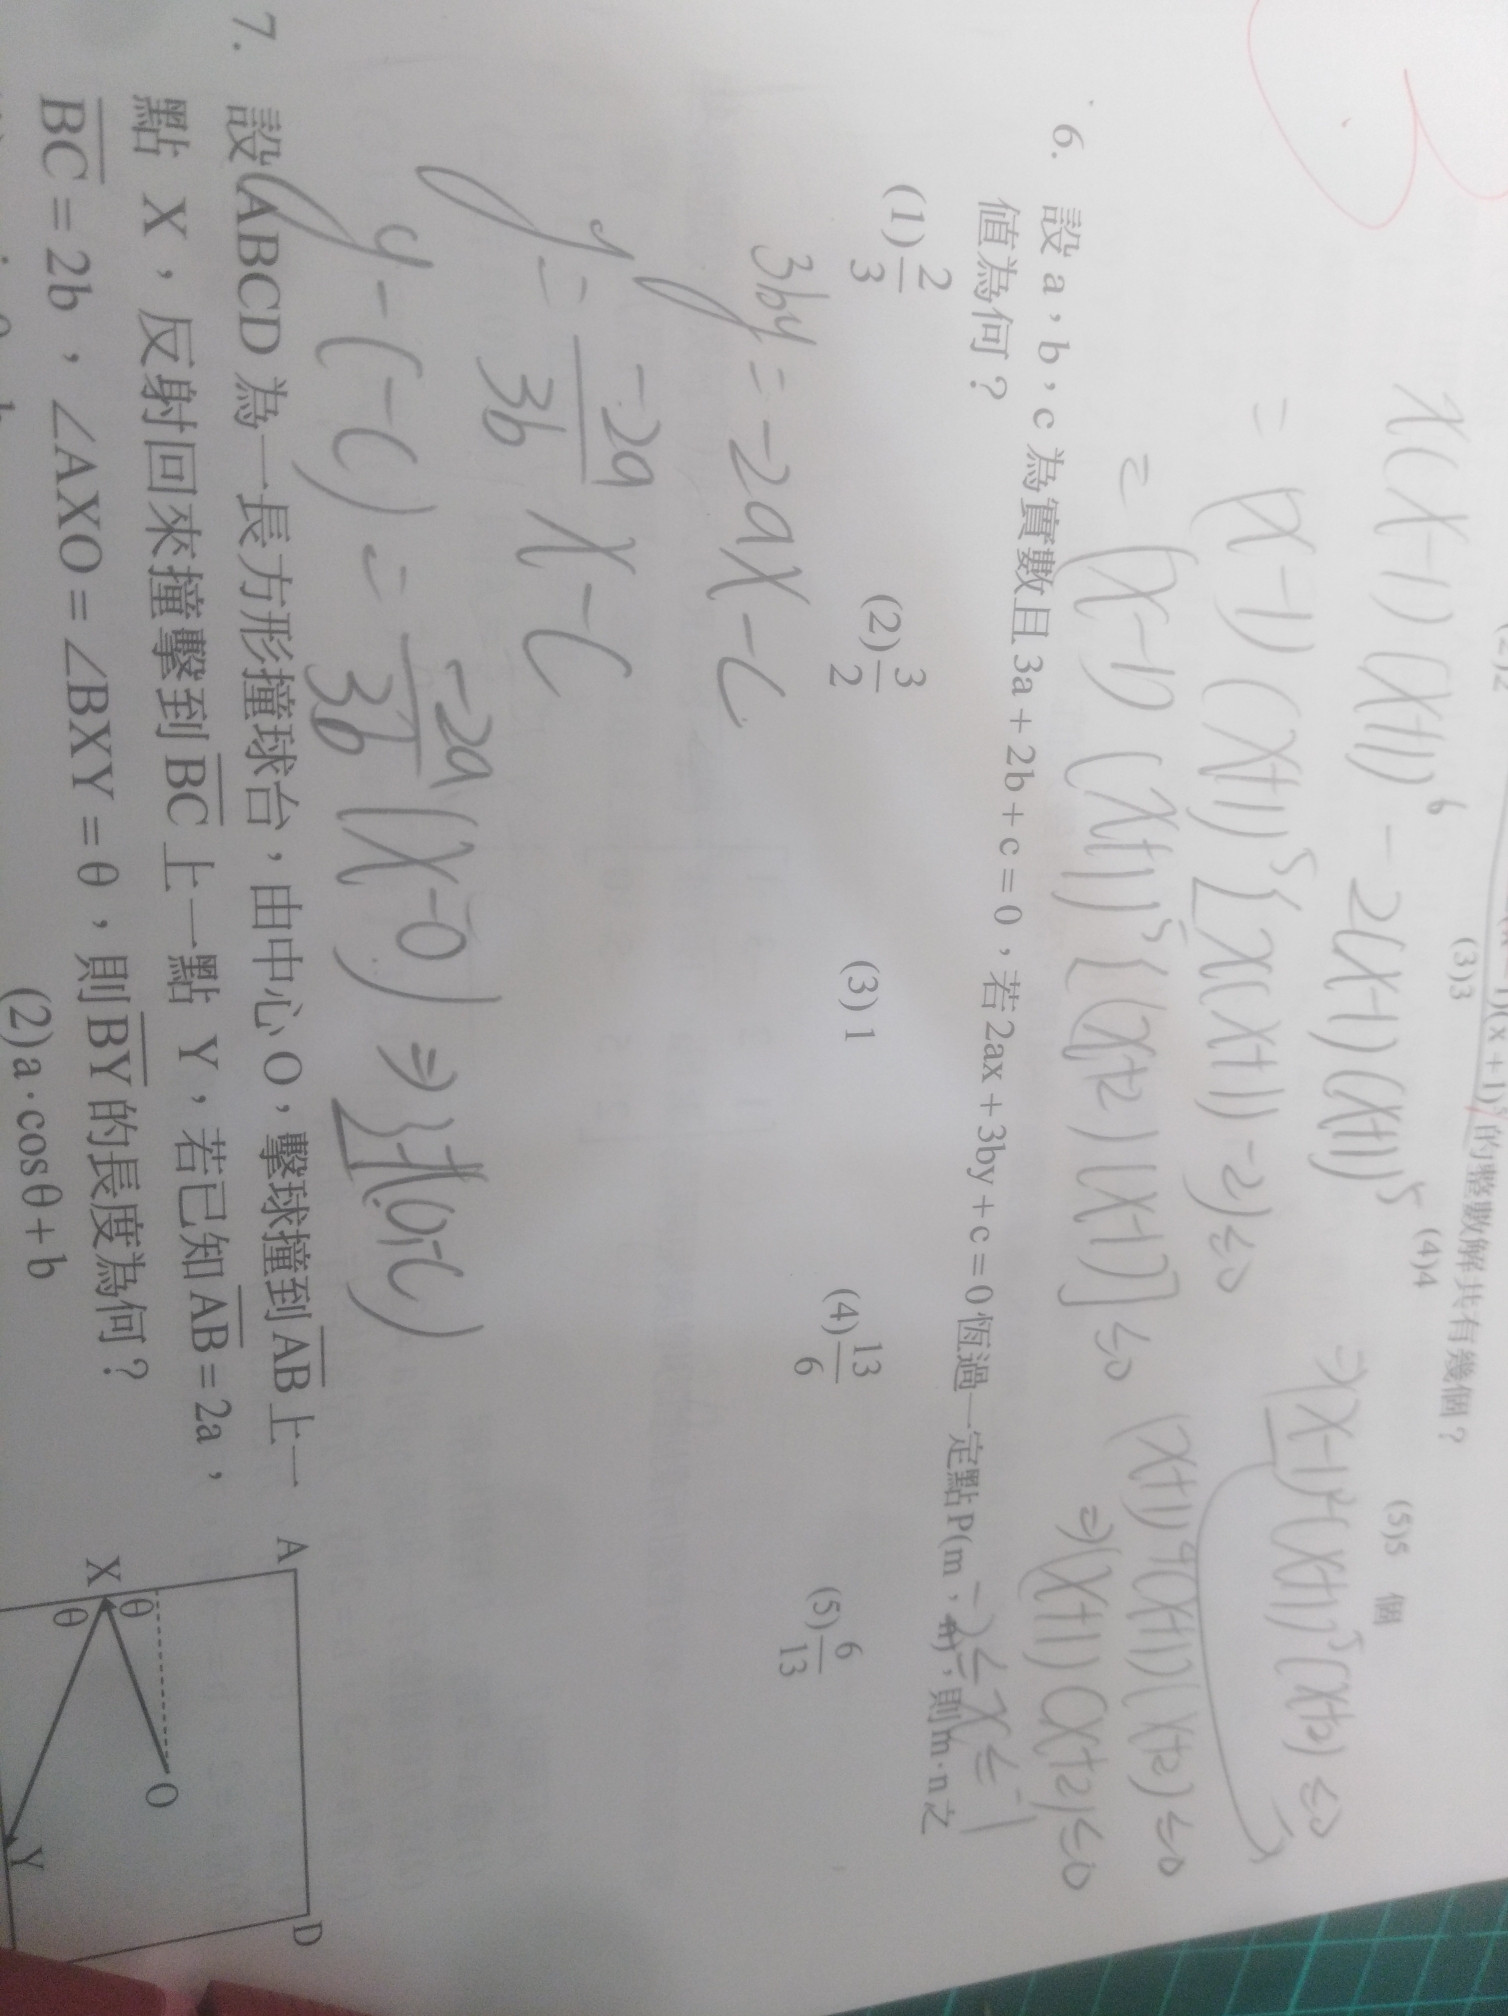 (2)2 (3)3 (4)4 (5)5 個
1)(x+1)⁵的整數解共有幾個？
x(x-1)(x+1)⁶-2(x-1)(x+1)⁵
=(x-1)(x+1)⁵[x(x+1)-2]≤0 ⇒(x-1)²(x+1)⁵(x+2)≤0
=(x-1)(x+1)⁵[(x+2)(x-1)]≤0 (x+1)⁴(x+1)(x+2)≤0
⇒(x+1)(x+2)≤0
-2≤x≤-1
6. 設 a，b，c 為實數且 3a+2b+c=0，若 2ax+3by+c=0 恆過一定點 P(m，n)，則 m·n 之
值為何？
(1)2/3 (2)3/2 (3)1 (4)13/6 (5)6/13
3by=-2ax-c
y=-2a/3b x-c
y-(-c)=-2a/3b(x-0)⇒(0,-c)
7. 設 ABCD 為一長方形撞球台，由中心 O，擊球撞到 AB 上一
點 X，反射回來撞擊到 BC 上一點 Y，若已知 AB=2a，
BC=2b，∠AXO=∠BXY=θ，則 BY 的長度為何？
(2)a·cosθ+b
A D
X θ θ O Y